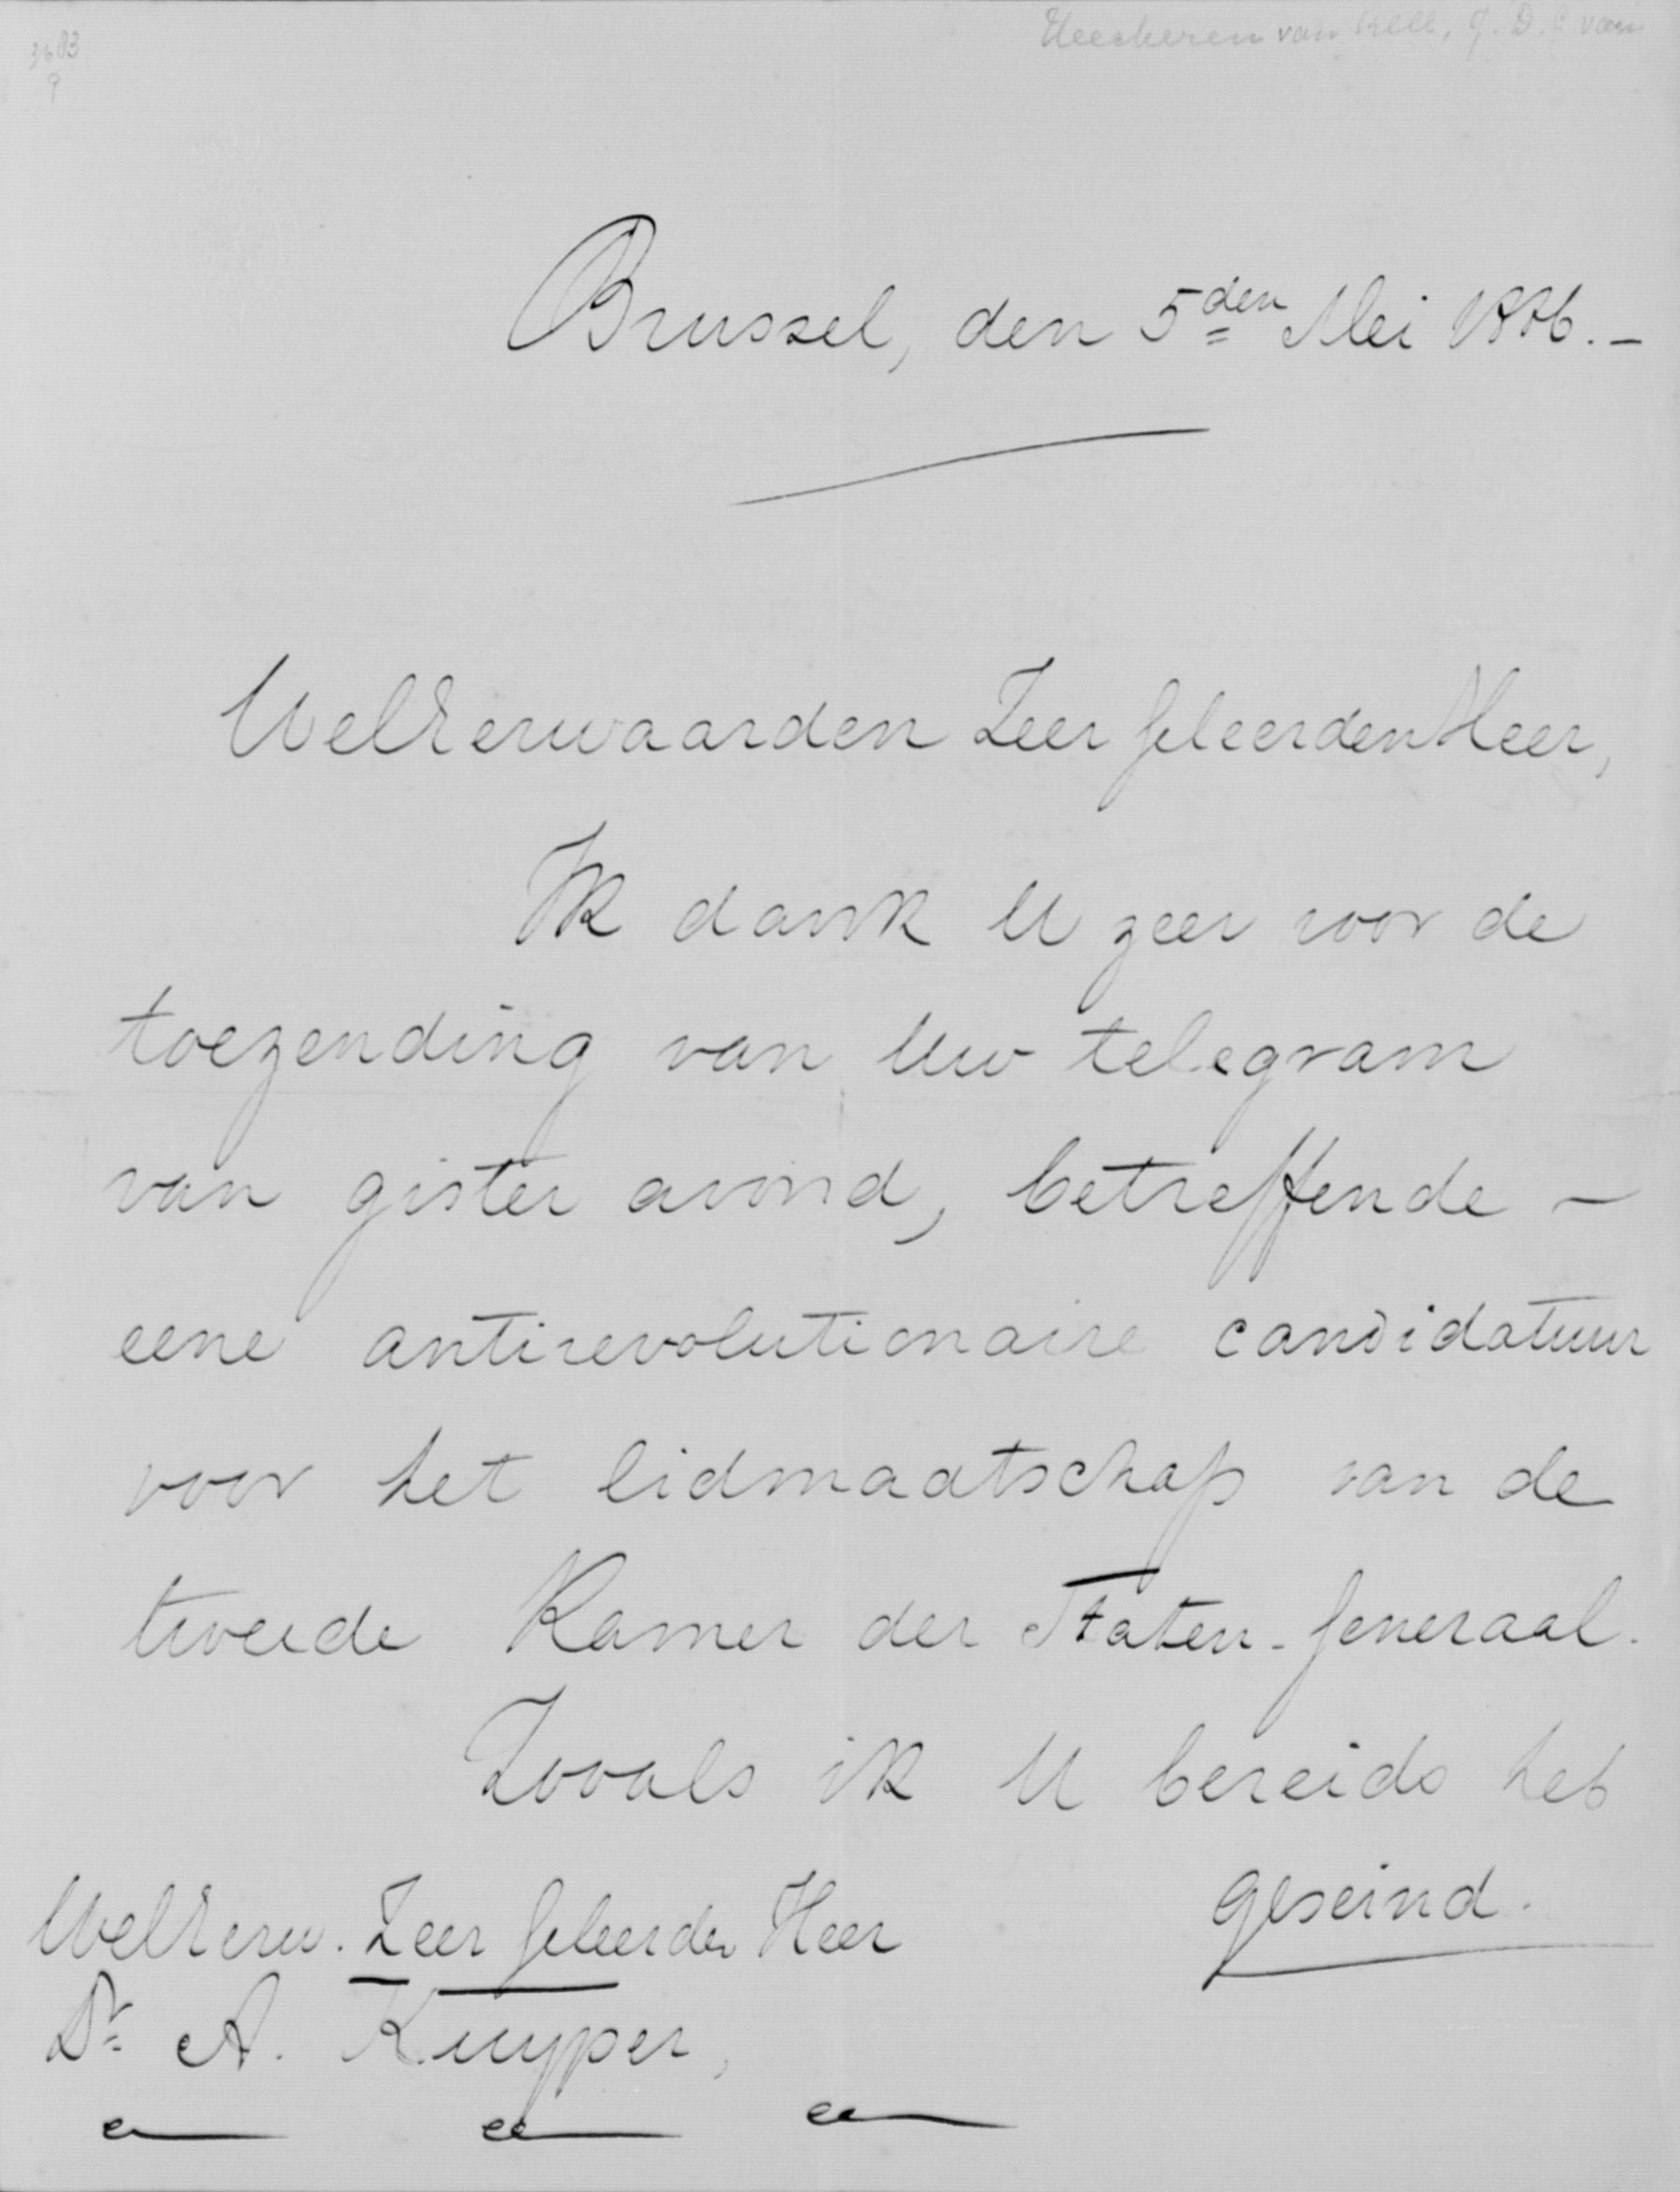 3683
9
Heeckeren van Kell, J. D. C. van
Brussel, den 5den Mei 1886.-
WelEerwaarden Zeer Geleerden Heer,
Ik dank U zeer voor de
toezending van Uw telegram
van gister avond, betreffende -
eene antirevolutionaire candidatuur
voor het lidmaatschap van de
tweede Kamer der Staten-Generaal.
Zooals ik U bereids heb
geseind.
WelEerw. Zeer Geleerden Heer
Dr A. Kuyper,